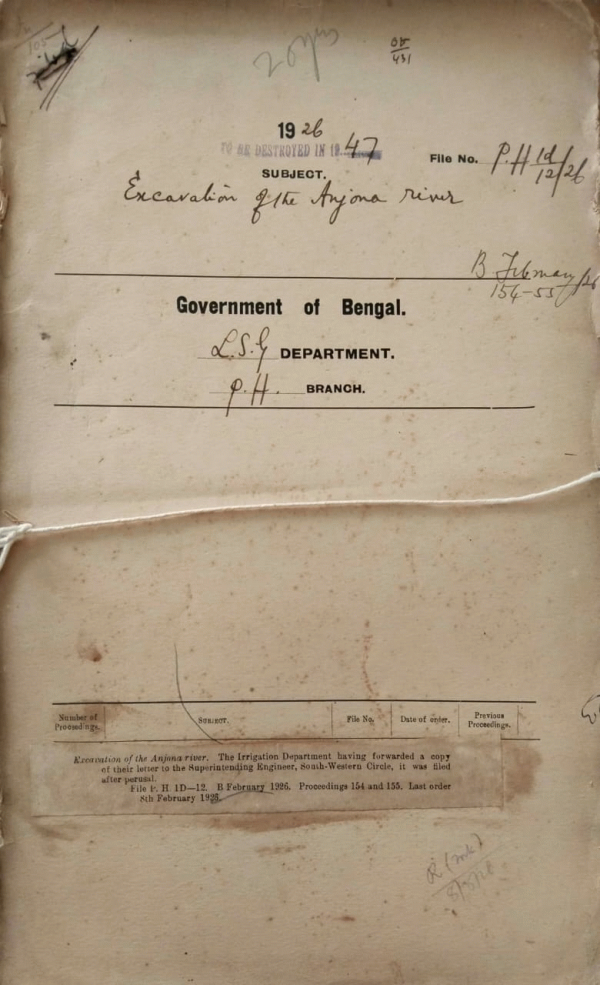 105
20 yrs
OB
431
1926
TO BE DESTROYED IN 1947
File No. P.H 1d/12/26
SUBJECT.
Excavation of the Anjona river
B February/26
154-55
Government of Bengal.
L.S.G DEPARTMENT.
P.H. BRANCH.
Number of Proceedings. SUBJECT. File No. Date of order. Previous Proceedings.
Excavation of the Anjona river. The Irrigation Department having forwarded a copy
of their letter to the Superintending Engineer, South-Western Circle, it was filed
after perusal.
File P. H. 1D—12. B February 1926. Proceedings 154 and 155. Last order
8th February 1926.